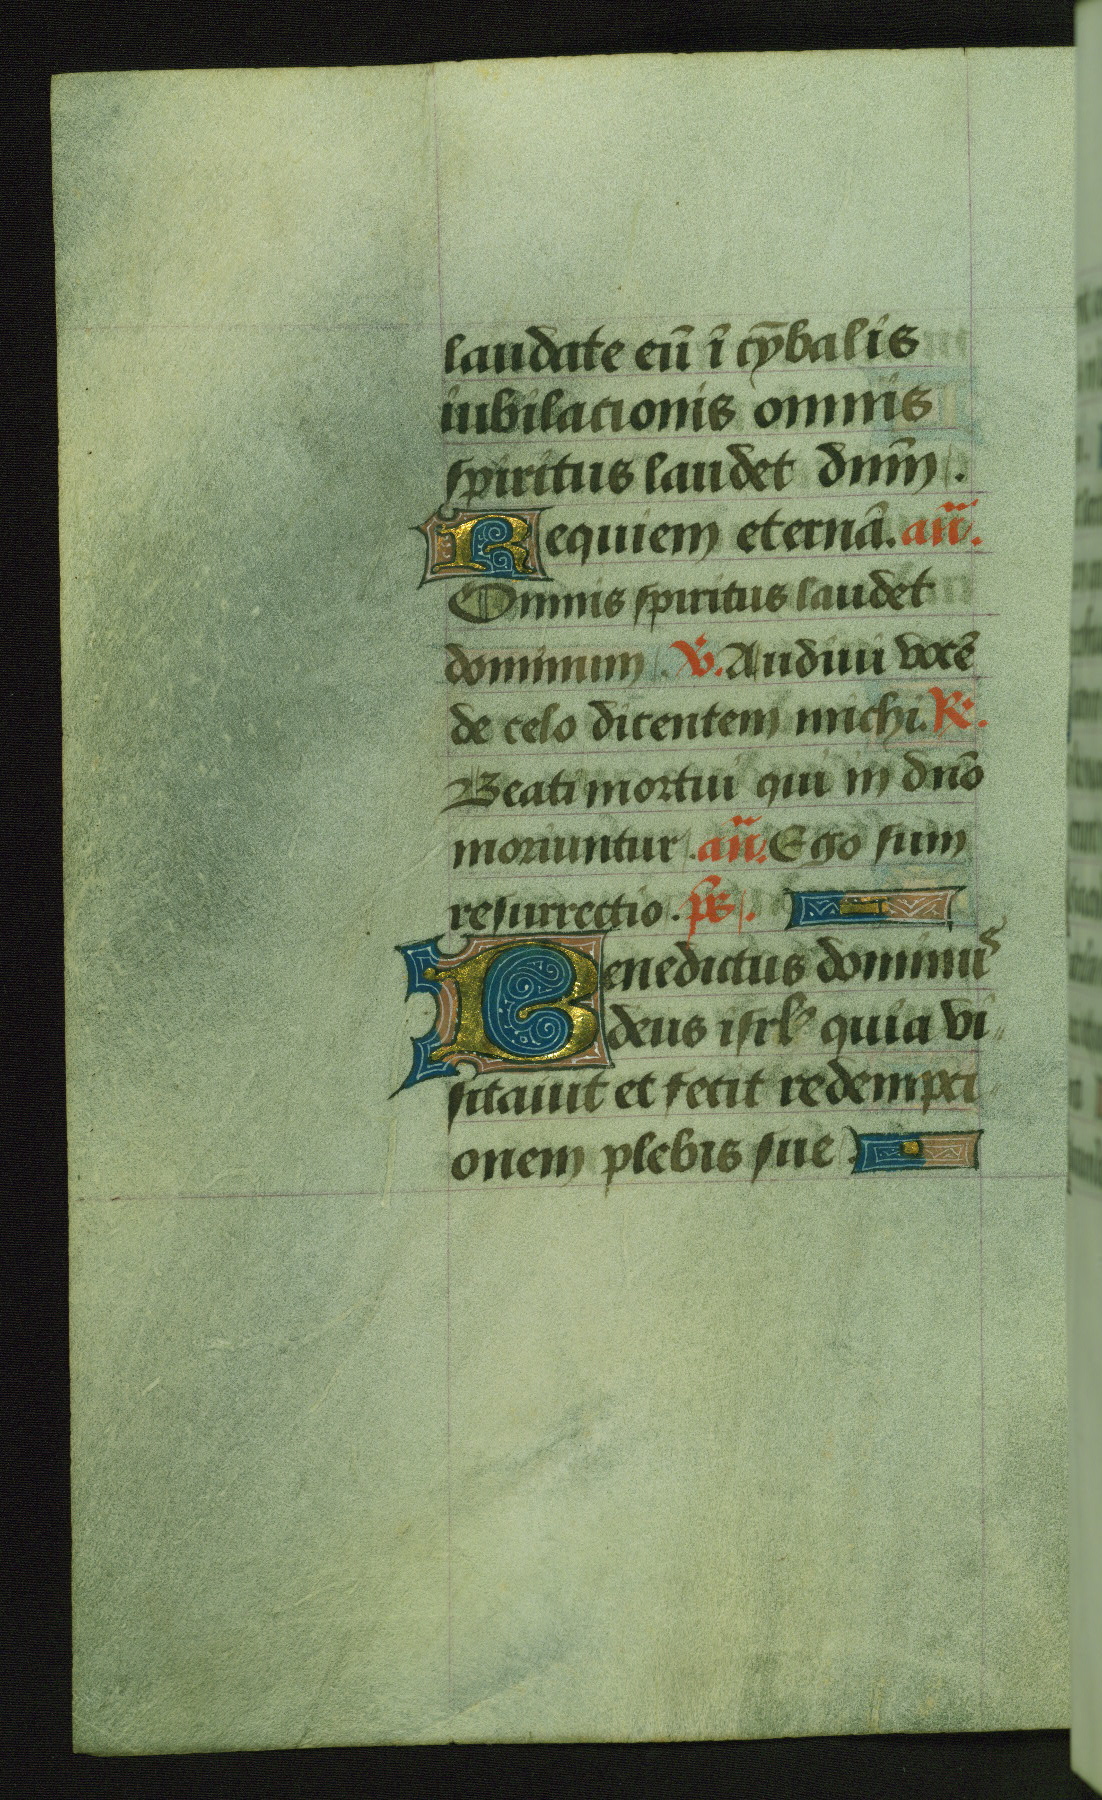 laudate eū ī cȳbalis
iubilacionis omnis
spiritus laudet dn̄m.
Requiem eternā. an̄.
Omnis spiritus laudet
dominum. V. Audiui vocē
de celo dicentem michi. R.
Beati mortui qui in dn̄o
moriuntur. an̄. Ego sum
resurrectio. ps.
Benedictus dominus
deus isrl' quia vi-
sitauit et fecit redempti
onem plebis sue.